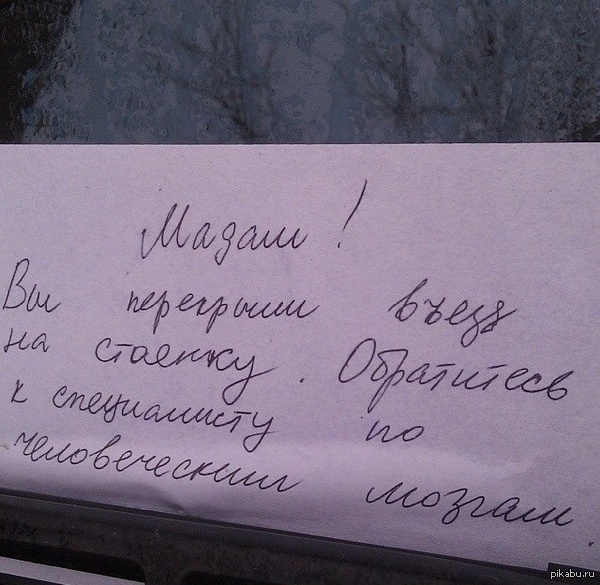 Мадам!
Вы перекрыли въезд
на стоянку. Обратитесь
к специалисту по
человеческим мозгам.
pikabu.ru